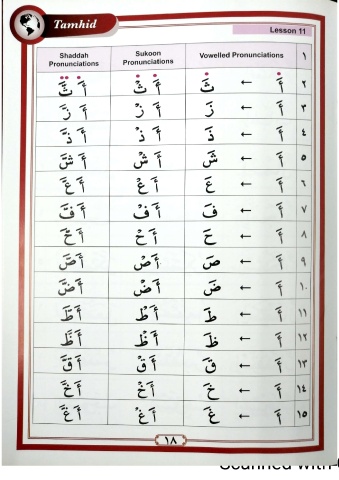 Tamhid
Lesson 11
Shaddah Pronunciations Sukoon Pronunciations Vowelled Pronunciations ١
٢ أَ ← ثَ أَ ثْ أَ ثَّ
٣ أَ ← زَ أَ زْ أَ زَّ
٤ أَ ← ذَ أَ ذْ أَ ذَّ
٥ أَ ← شَ أَ شْ أَ شَّ
٦ أَ ← عَ أَ عْ أَ عَّ
٧ أَ ← فَ أَ فْ أَ فَّ
٨ أَ ← حَ أَ حْ أَ حَّ
٩ أَ ← صَ أَ صْ أَ صَّ
١٠ أَ ← ضَ أَ ضْ أَ ضَّ
١١ أَ ← طَ أَ طْ أَ طَّ
١٢ أَ ← ظَ أَ ظْ أَ ظَّ
١٣ أَ ← قَ أَ قْ أَ قَّ
١٤ أَ ← خَ أَ خْ أَ خَّ
١٥ أَ ← غَ أَ غْ أَ غَّ
١٨
Scanned with